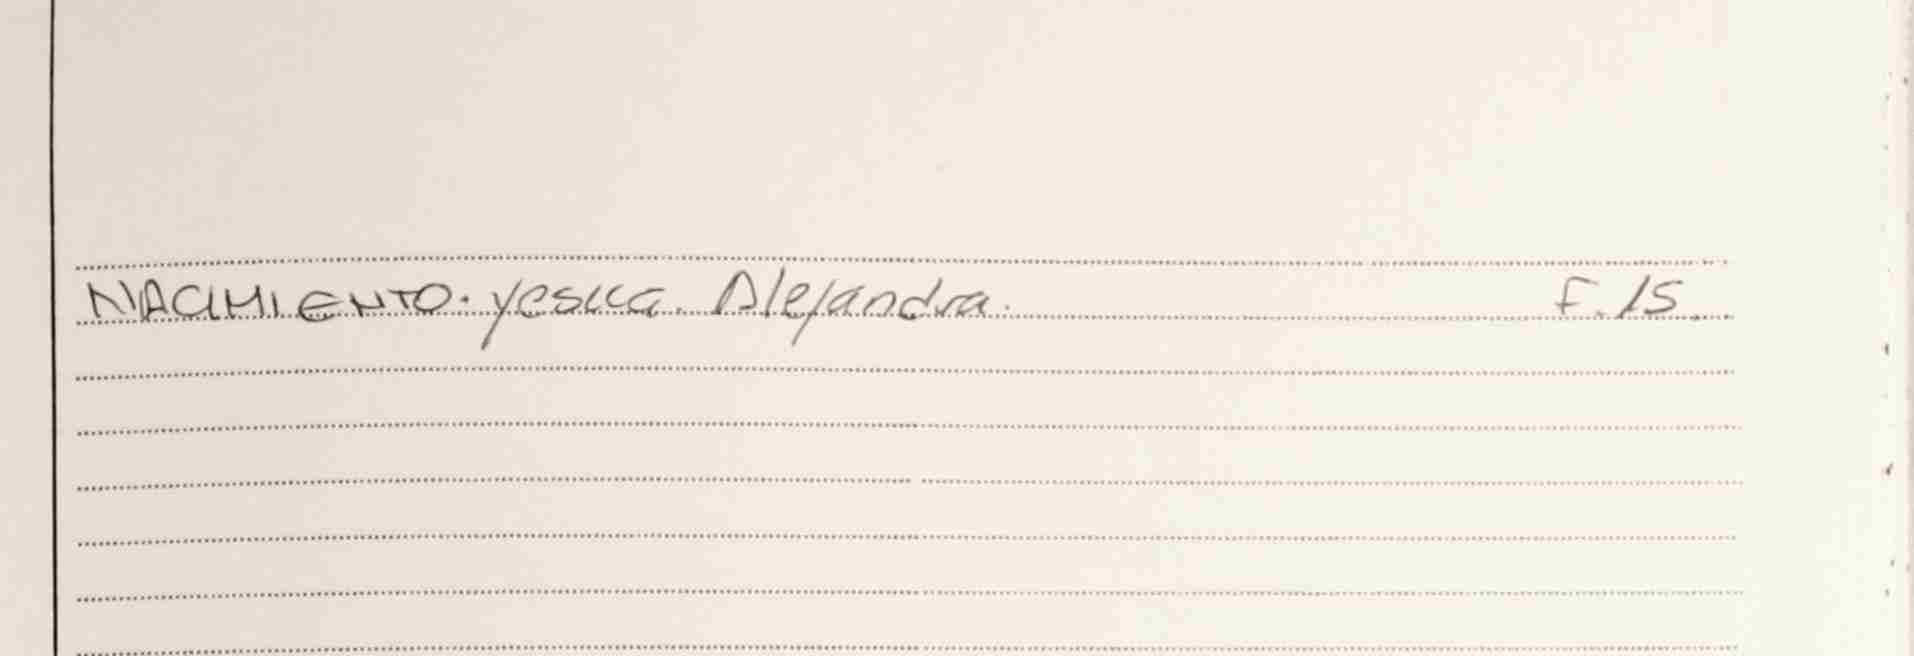 NACIMIENTO. Yesica. Alejandra. F. 15.